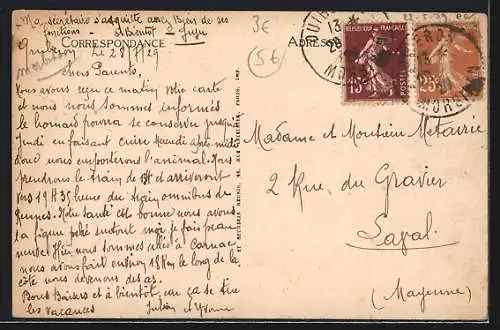 Ma secrétaire s'acquitte assez bien de ses
fonctions. et Bientôt Juju
CORRESPONDANCE
ADRESSE
3€
(5€)
le 28/8/29
Chers Parents,
Vous avons reçu ce matin votre carte
et nous nous sommes informés
le homard pourra se conserver jusque
Jeudi en faisant cuire Mercredi après-midi
donc nous emporterons l'animal. Nous
prendrons le train de et arriverons
vers 19 H 35 heure du train omnibus de
Rennes. Notre santé est bonne nous avons
la figure surtout moi je fais peau
neuve. Hier nous sommes allés à Carnac
nous avons fait environ 18 Km le long de la
côte nous devenons des as.
Bons Baisers et à bientôt car ça se tire
les vacances Julien et Yvonne
Madame et Monsieur Métairie
2 Rue du Gravier
Laval
(Mayenne)
REPUBLIQUE FRANÇAISE
15c
POSTES
25c
QUIBERON
MORBIHAN